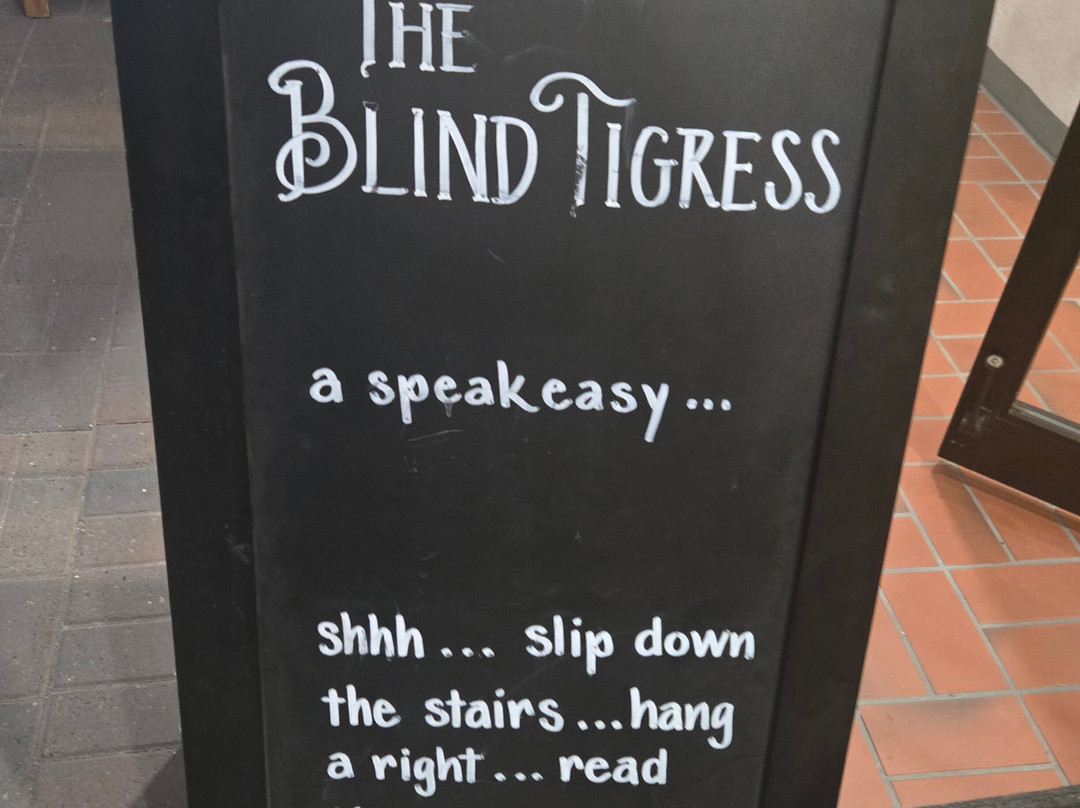 THE
BLIND TIGRESS
a speakeasy...
shhh... slip down
the stairs...hang
a right... read